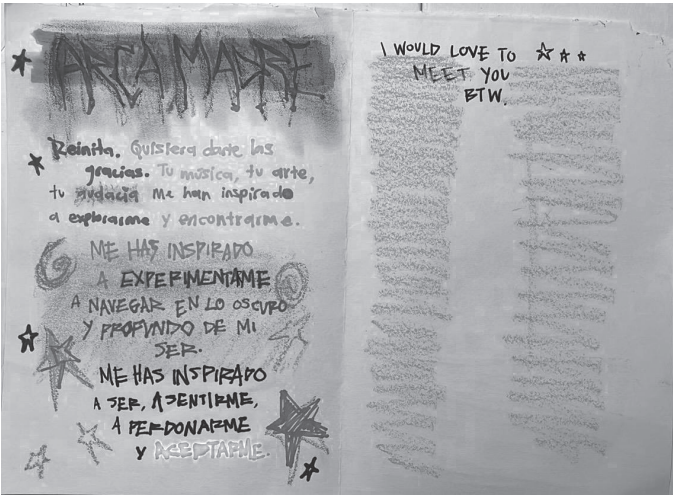 ARCA MADRE
Reinita. Quisiera darte las
gracias. Tu música, tu arte,
tu audacia me han inspirado
a explorarme y encontrarme.
ME HAS INSPIRADO
A EXPERIMENTAME
A NAVEGAR EN LO OSCURO
Y PROFUNDO DE MI
SER.
ME HAS INSPIRADO
A SER, A SENTIRME,
A PERDONARME
Y ACEPTARME.
I WOULD LOVE TO
MEET YOU
BTW.